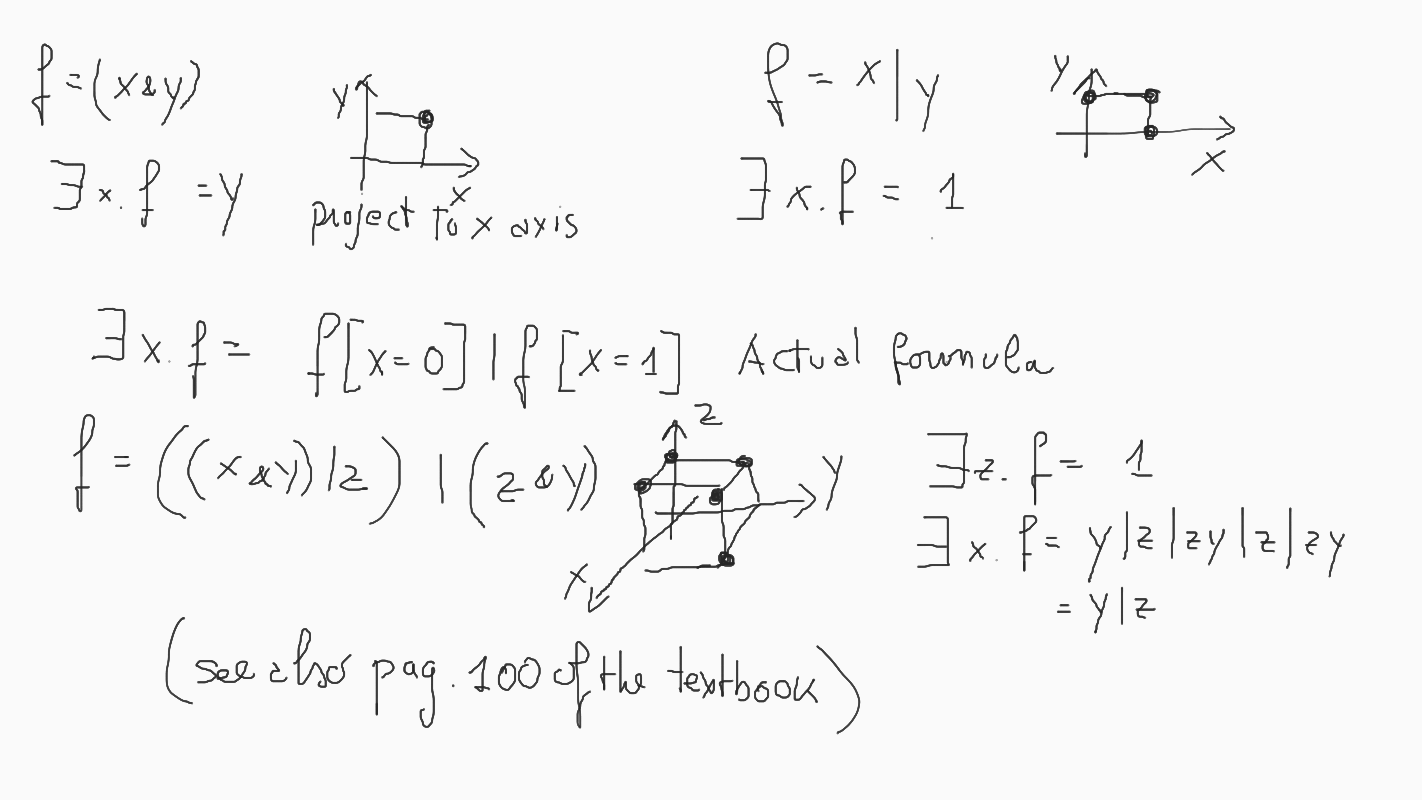 f = (x & y)
∃ x. f = y
y
x
project to x axis
f = x | y
∃ x. f = 1
y
x
∃ x. f = f [x = 0] | f [x = 1] Actual formula
f = ((x & y) | z) | (z & y)
z
y
x
∃ z. f = 1
∃ x. f = y | z | zy | z | zy
= y | z
(see also pag. 100 of the textbook)